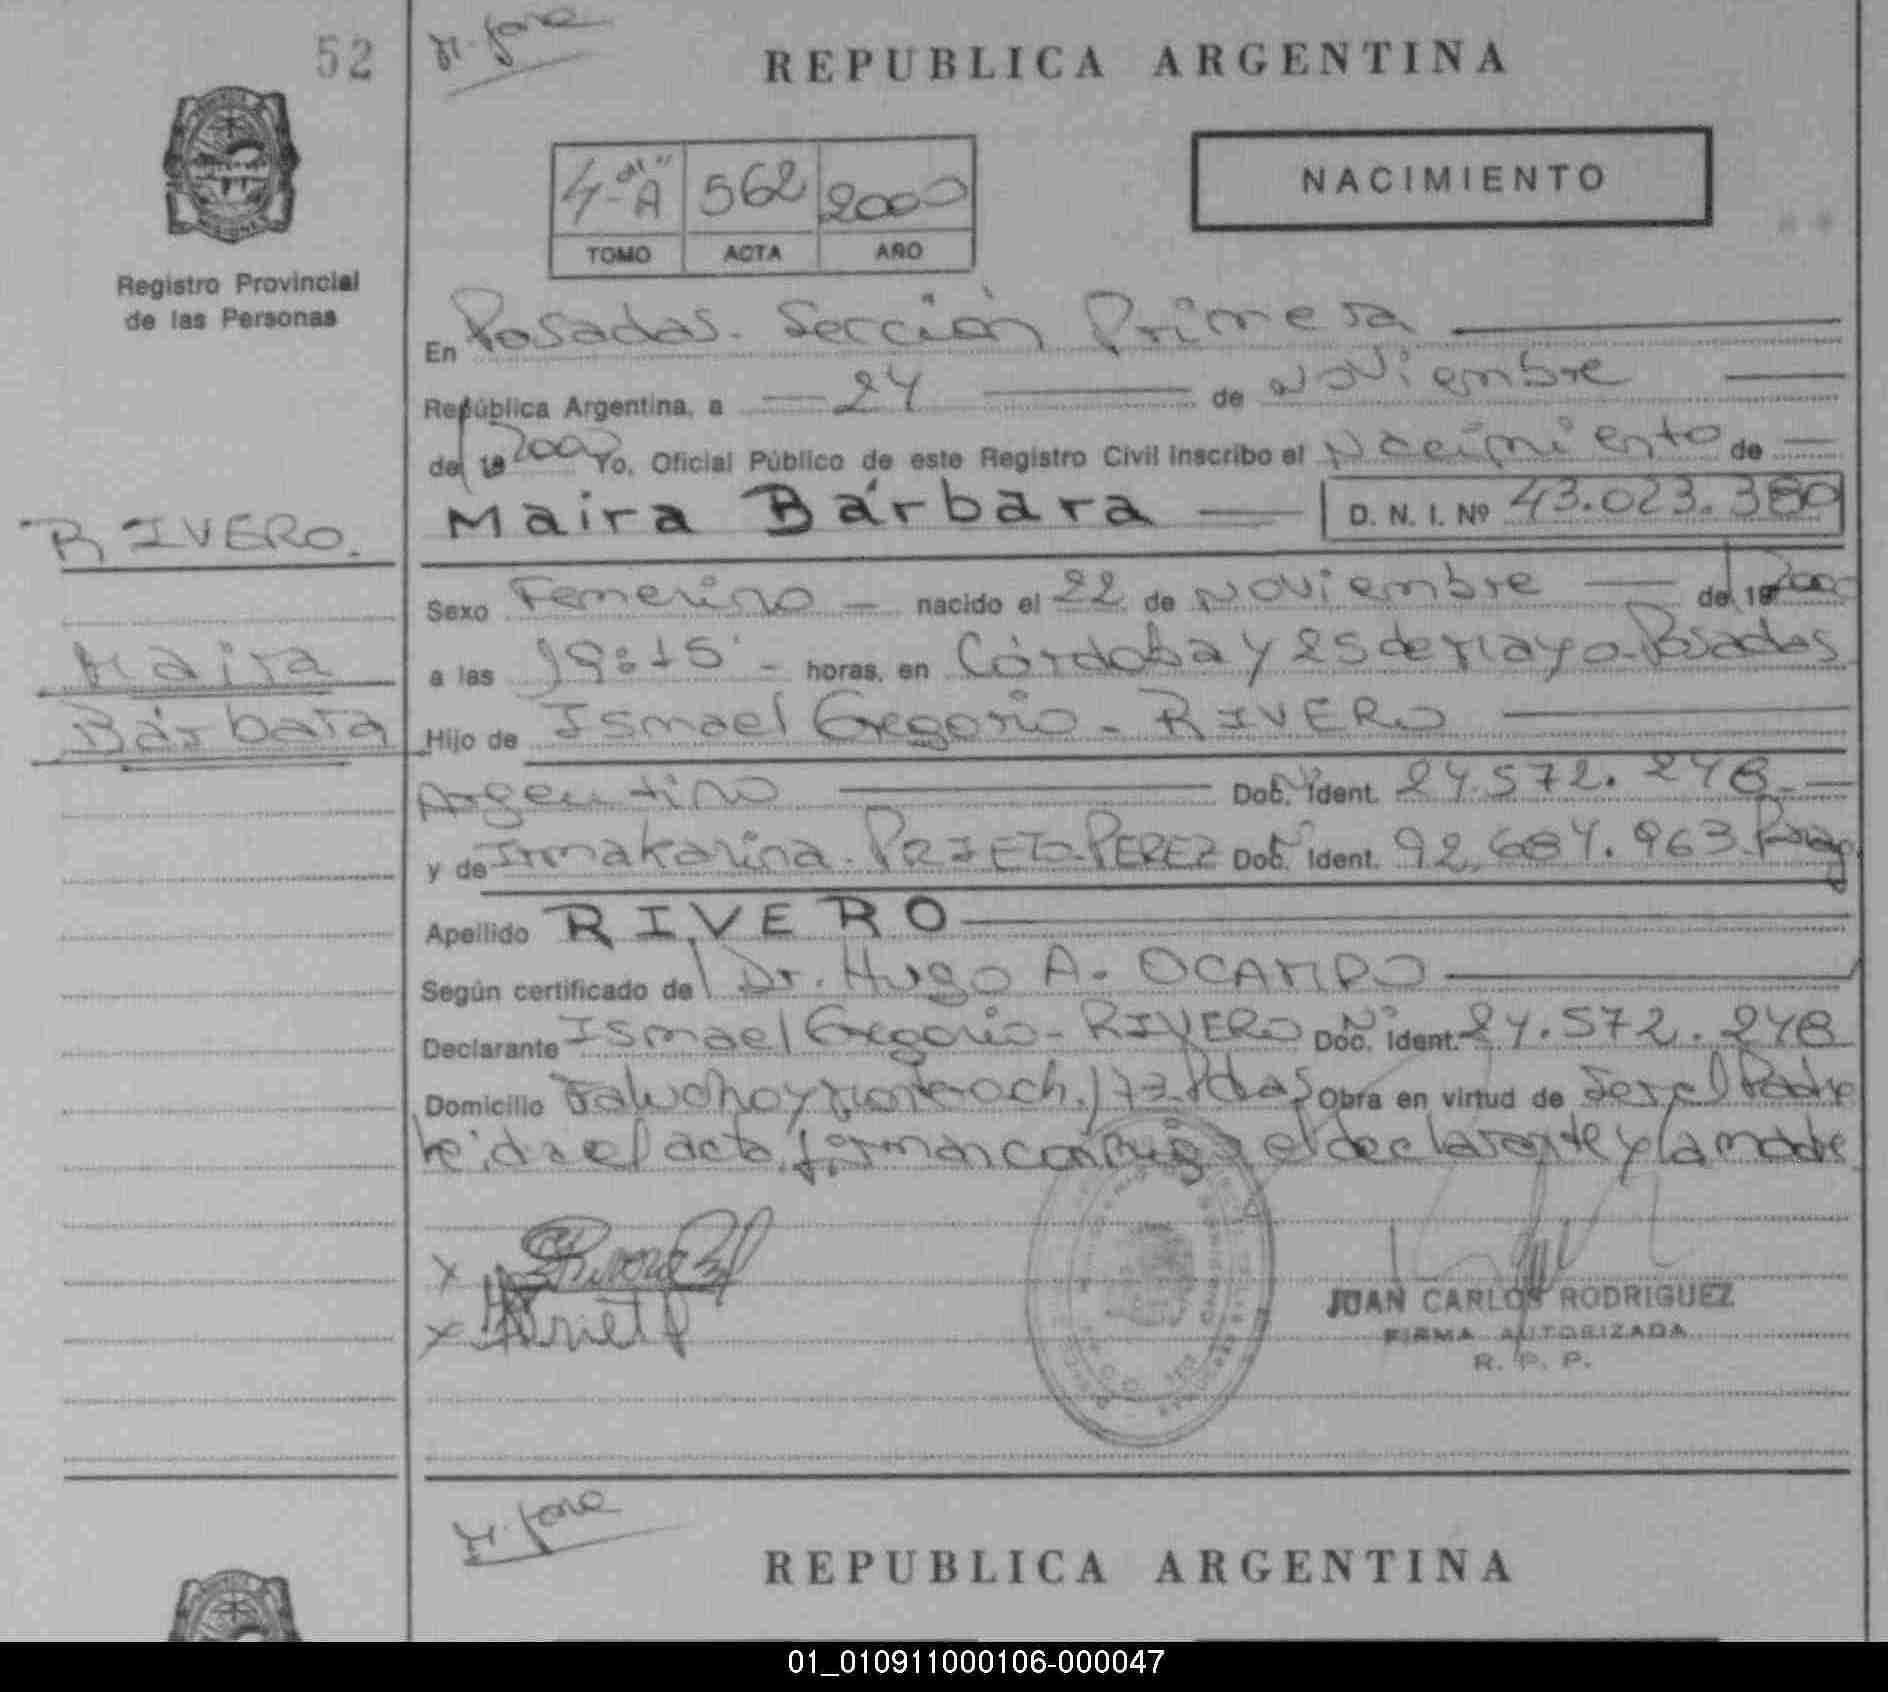 52
REPUBLICA ARGENTINA
4-"A" 562 2000
TOMO ACTA AÑO
NACIMIENTO
Registro Provincial
de las Personas
En Posadas. Sección Primera
República Argentina, a 24 de Noviembre
del 19 2000 Yo, Oficial Público de este Registro Civil inscribo el Nacimiento de
Maira Bárbara D. N. I. Nº 43.023.380
RIVERO.
Maira
Bárbara
Sexo Femenino - nacido el 22 de Noviembre del 19 2000
a las 19:15' - horas, en Córdoba y 25 de Mayo - Posadas
Hijo de Ismael Gregorio - RIVERO
Argentino Doc. Nº Ident. 24.572.248 -
y de Irma Karina - PRIETO - PEREZ Doc. Nº Ident. 92.684.963 -
Apellido RIVERO
Según certificado del Dr. Hugo A. OCAMPO
Declarante Ismael Gregorio - RIVERO Doc. Nº Ident. 24.572.248
Domicilio Falucho y ch. 173 - Pdas Obra en virtud de ser el Padre
leída el acta, firman conmigo el declarante y la madre
X
X
JUAN CARLOS RODRIGUEZ
FIRMA AUTORIZADA
R. P. P.
REPUBLICA ARGENTINA
01_010911000106-000047